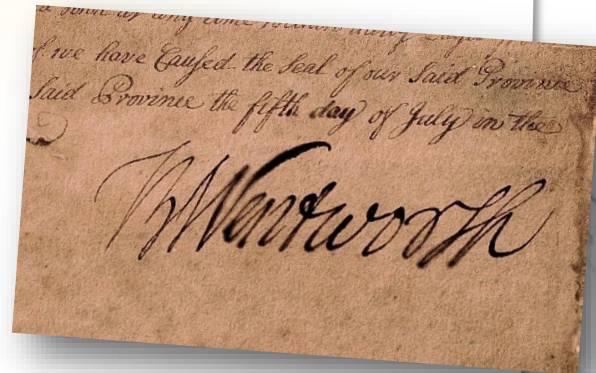 we have Caused the Seal of our Said Province
Said Province the fifth day of July in the
B Wentworth